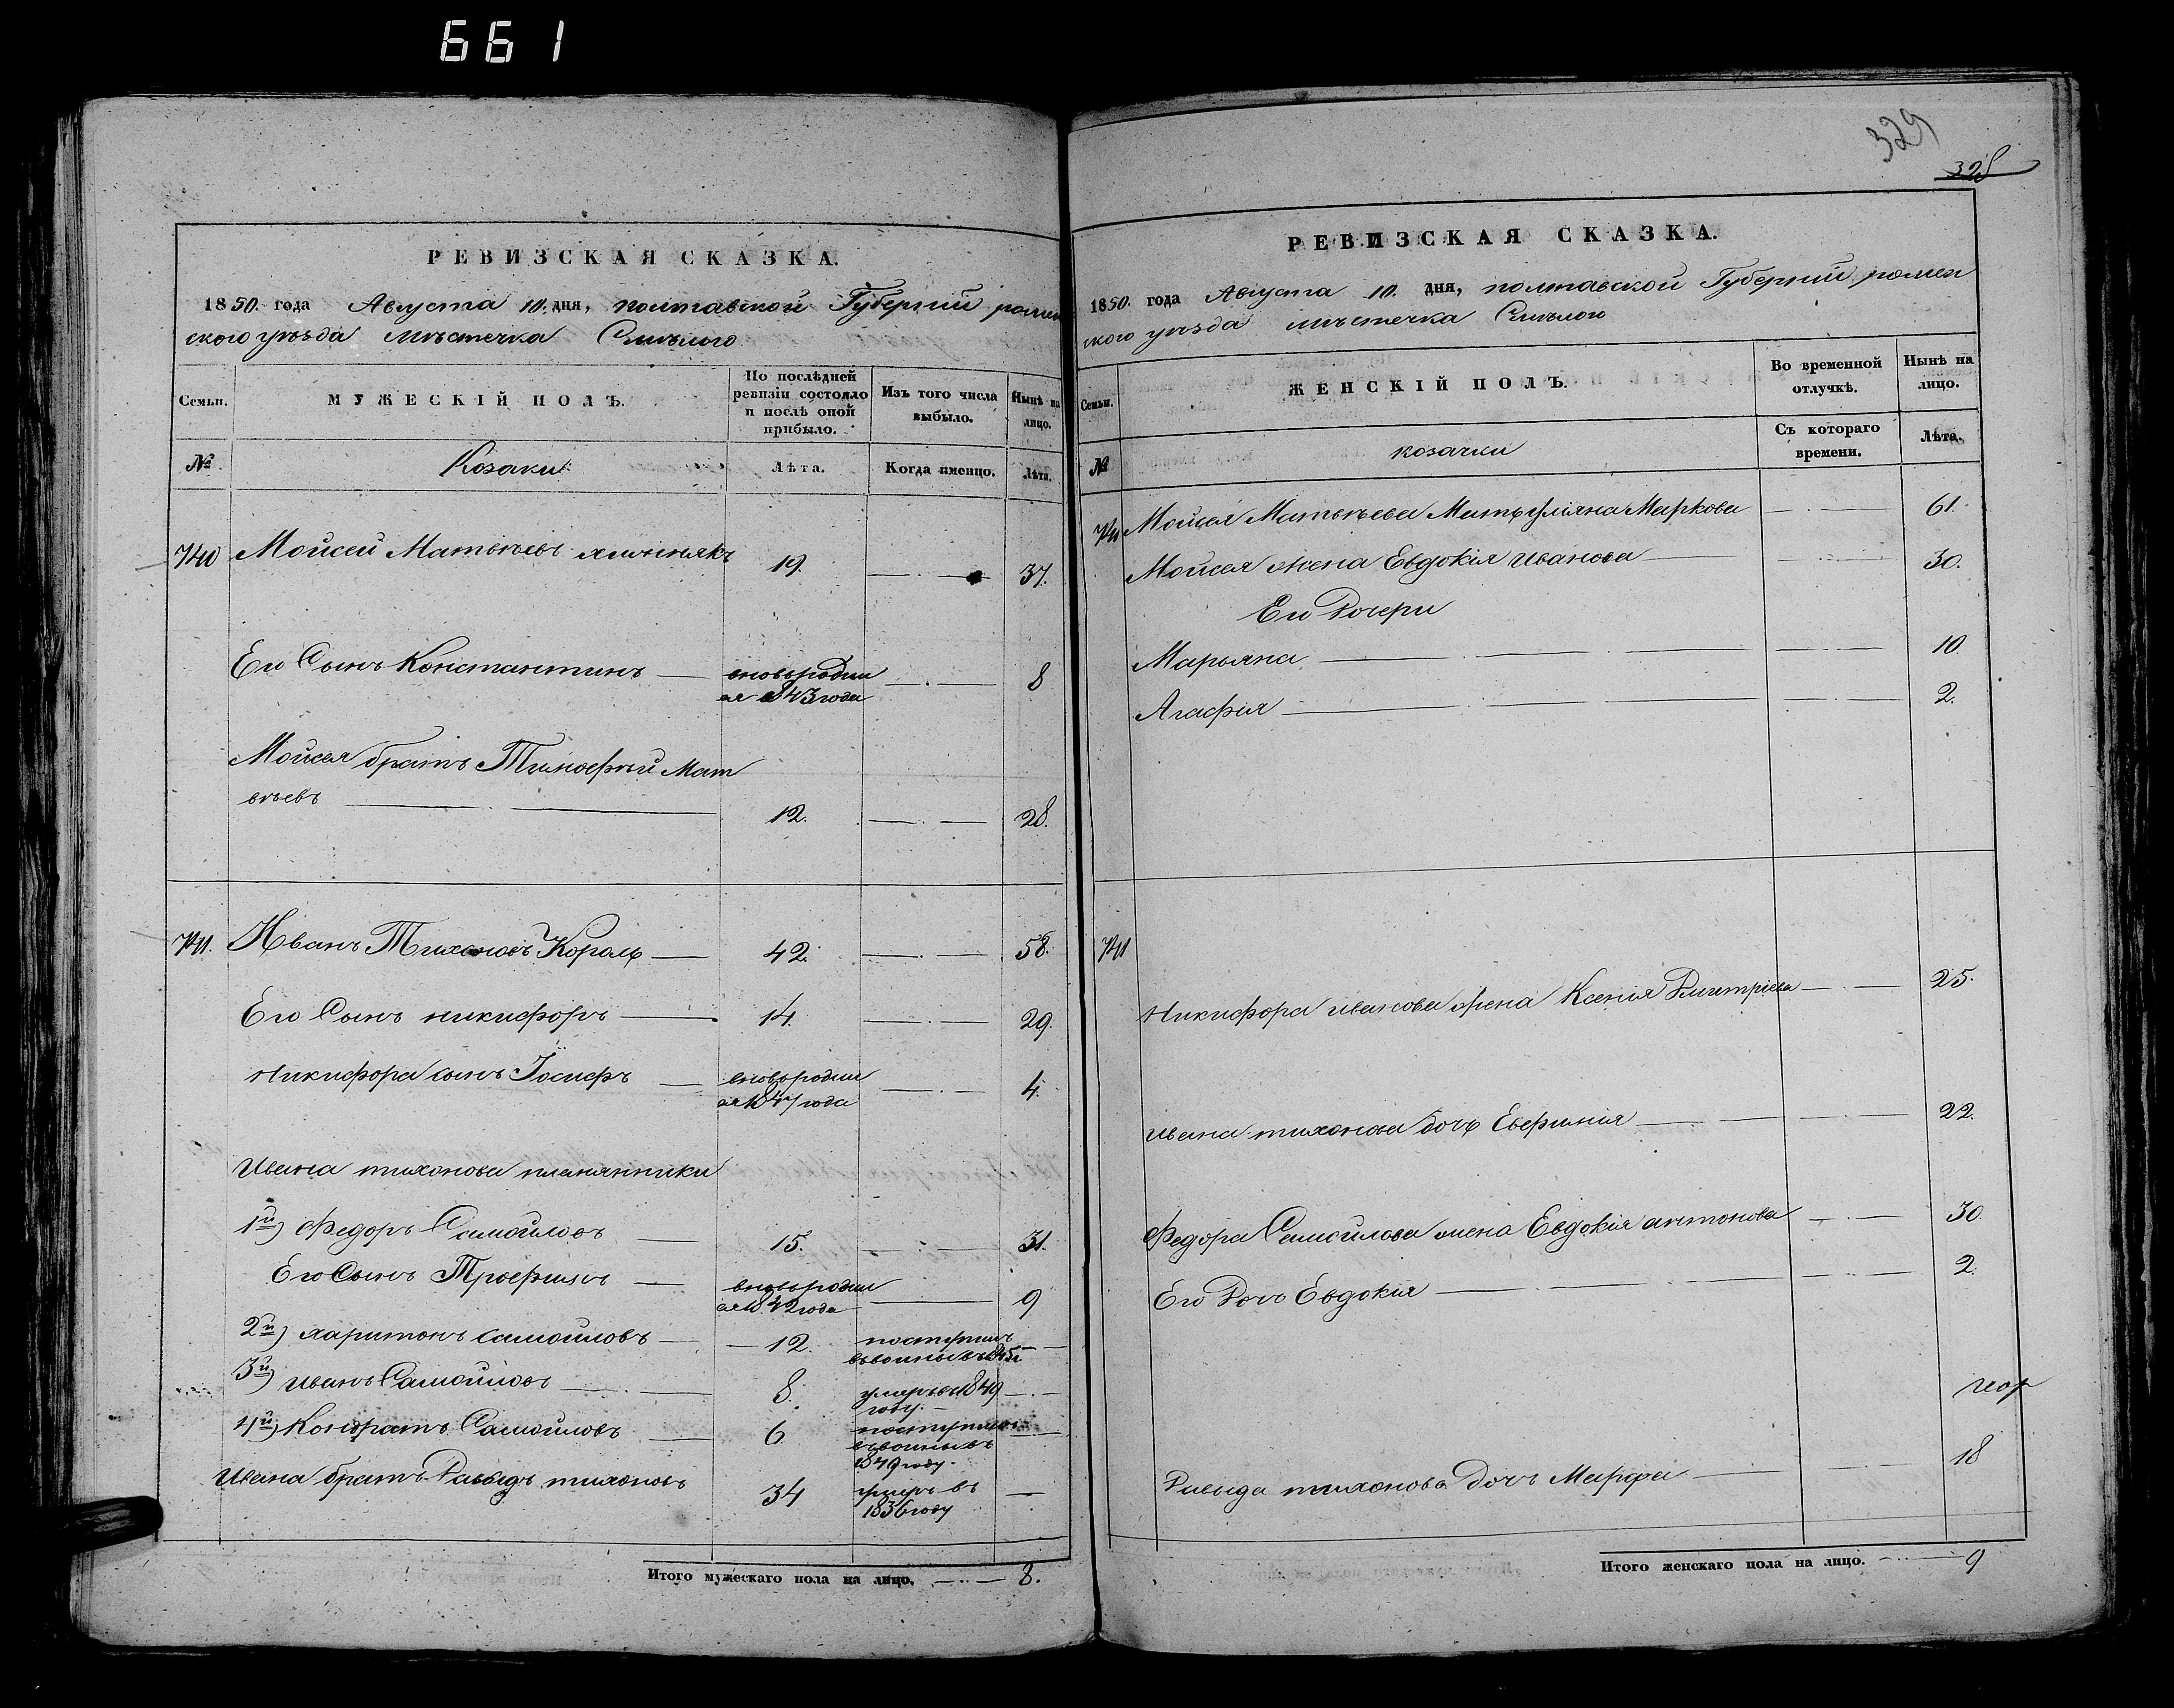 661
РЕВИЗСКАЯ СКАЗКА.
1850. года Августа 10. дня, полтавской Губерній ромен
ского уѣзда мѣстечка Смѣлого
Семьи.
МУЖЕСКІЙ ПОЛЪ.
По послѣдней ревизіи состояло и послѣ оной прибыло.
Изъ того числа выбыло.
Нынѣ на лицо.
№
Козаки
Лѣта.
Когда именно.
Лѣта.
740 Мойсей Матвѣевъ 19. 37.
Его Сынъ Константинъ вновьродил 8
ся 1843 года
Мойсея братъ Тимофѣй Мат
вѣевъ 12. 28.
741. Иванъ Тихоновъ Король 42. 58.
Его Сынъ никифоръ 14. 29.
Никифора сынъ Іосифъ вновьродил 4.
ся 1847 года
Ивана тихонова племянники
1й) Федоръ Самойловъ 15. 31.
Его Сынъ Трофимъ вновьродил 9
ся 1842 года
2й) харитонъ самойловъ 12. поступилъ
3й) иванъ Самойловъ 8. умеръ въ 1849
году.
4й) Кондратъ Самойловъ 6. поступилъ
1849 году.
Ивана братъ Давыдъ тихоновъ 34 умеръ въ
1836 году
Итого мужескаго пола на лицо. 8.
329
328
РЕВИЗСКАЯ СКАЗКА.
1850. года Августа 10. дня, полтавской Губерній ромен
ского уѣзда мѣстечка Смѣлого
Семьи.
ЖЕНСКІЙ ПОЛЪ.
Во временной отлучкѣ.
Нынѣ на лицо.
№
козачки
Съ котораго времени.
Лѣта.
740 Мойсея Матвѣева Мать уліяна Маркова 61.
Мойсея жена Евдокія иванова 30.
Ея Дочери
Марьяна 10.
Агафія 2.
741
Никифора иванова жена Ксенія Дмитріева 25.
ивана тихонова дочь Евфимія 22.
Федора Самойлова жена Евдокія антонова 30.
Его Дочь Евдокія 2.
Давыда тихонова Дочь Марфа 18
Итого женскаго пола на лицо. 9